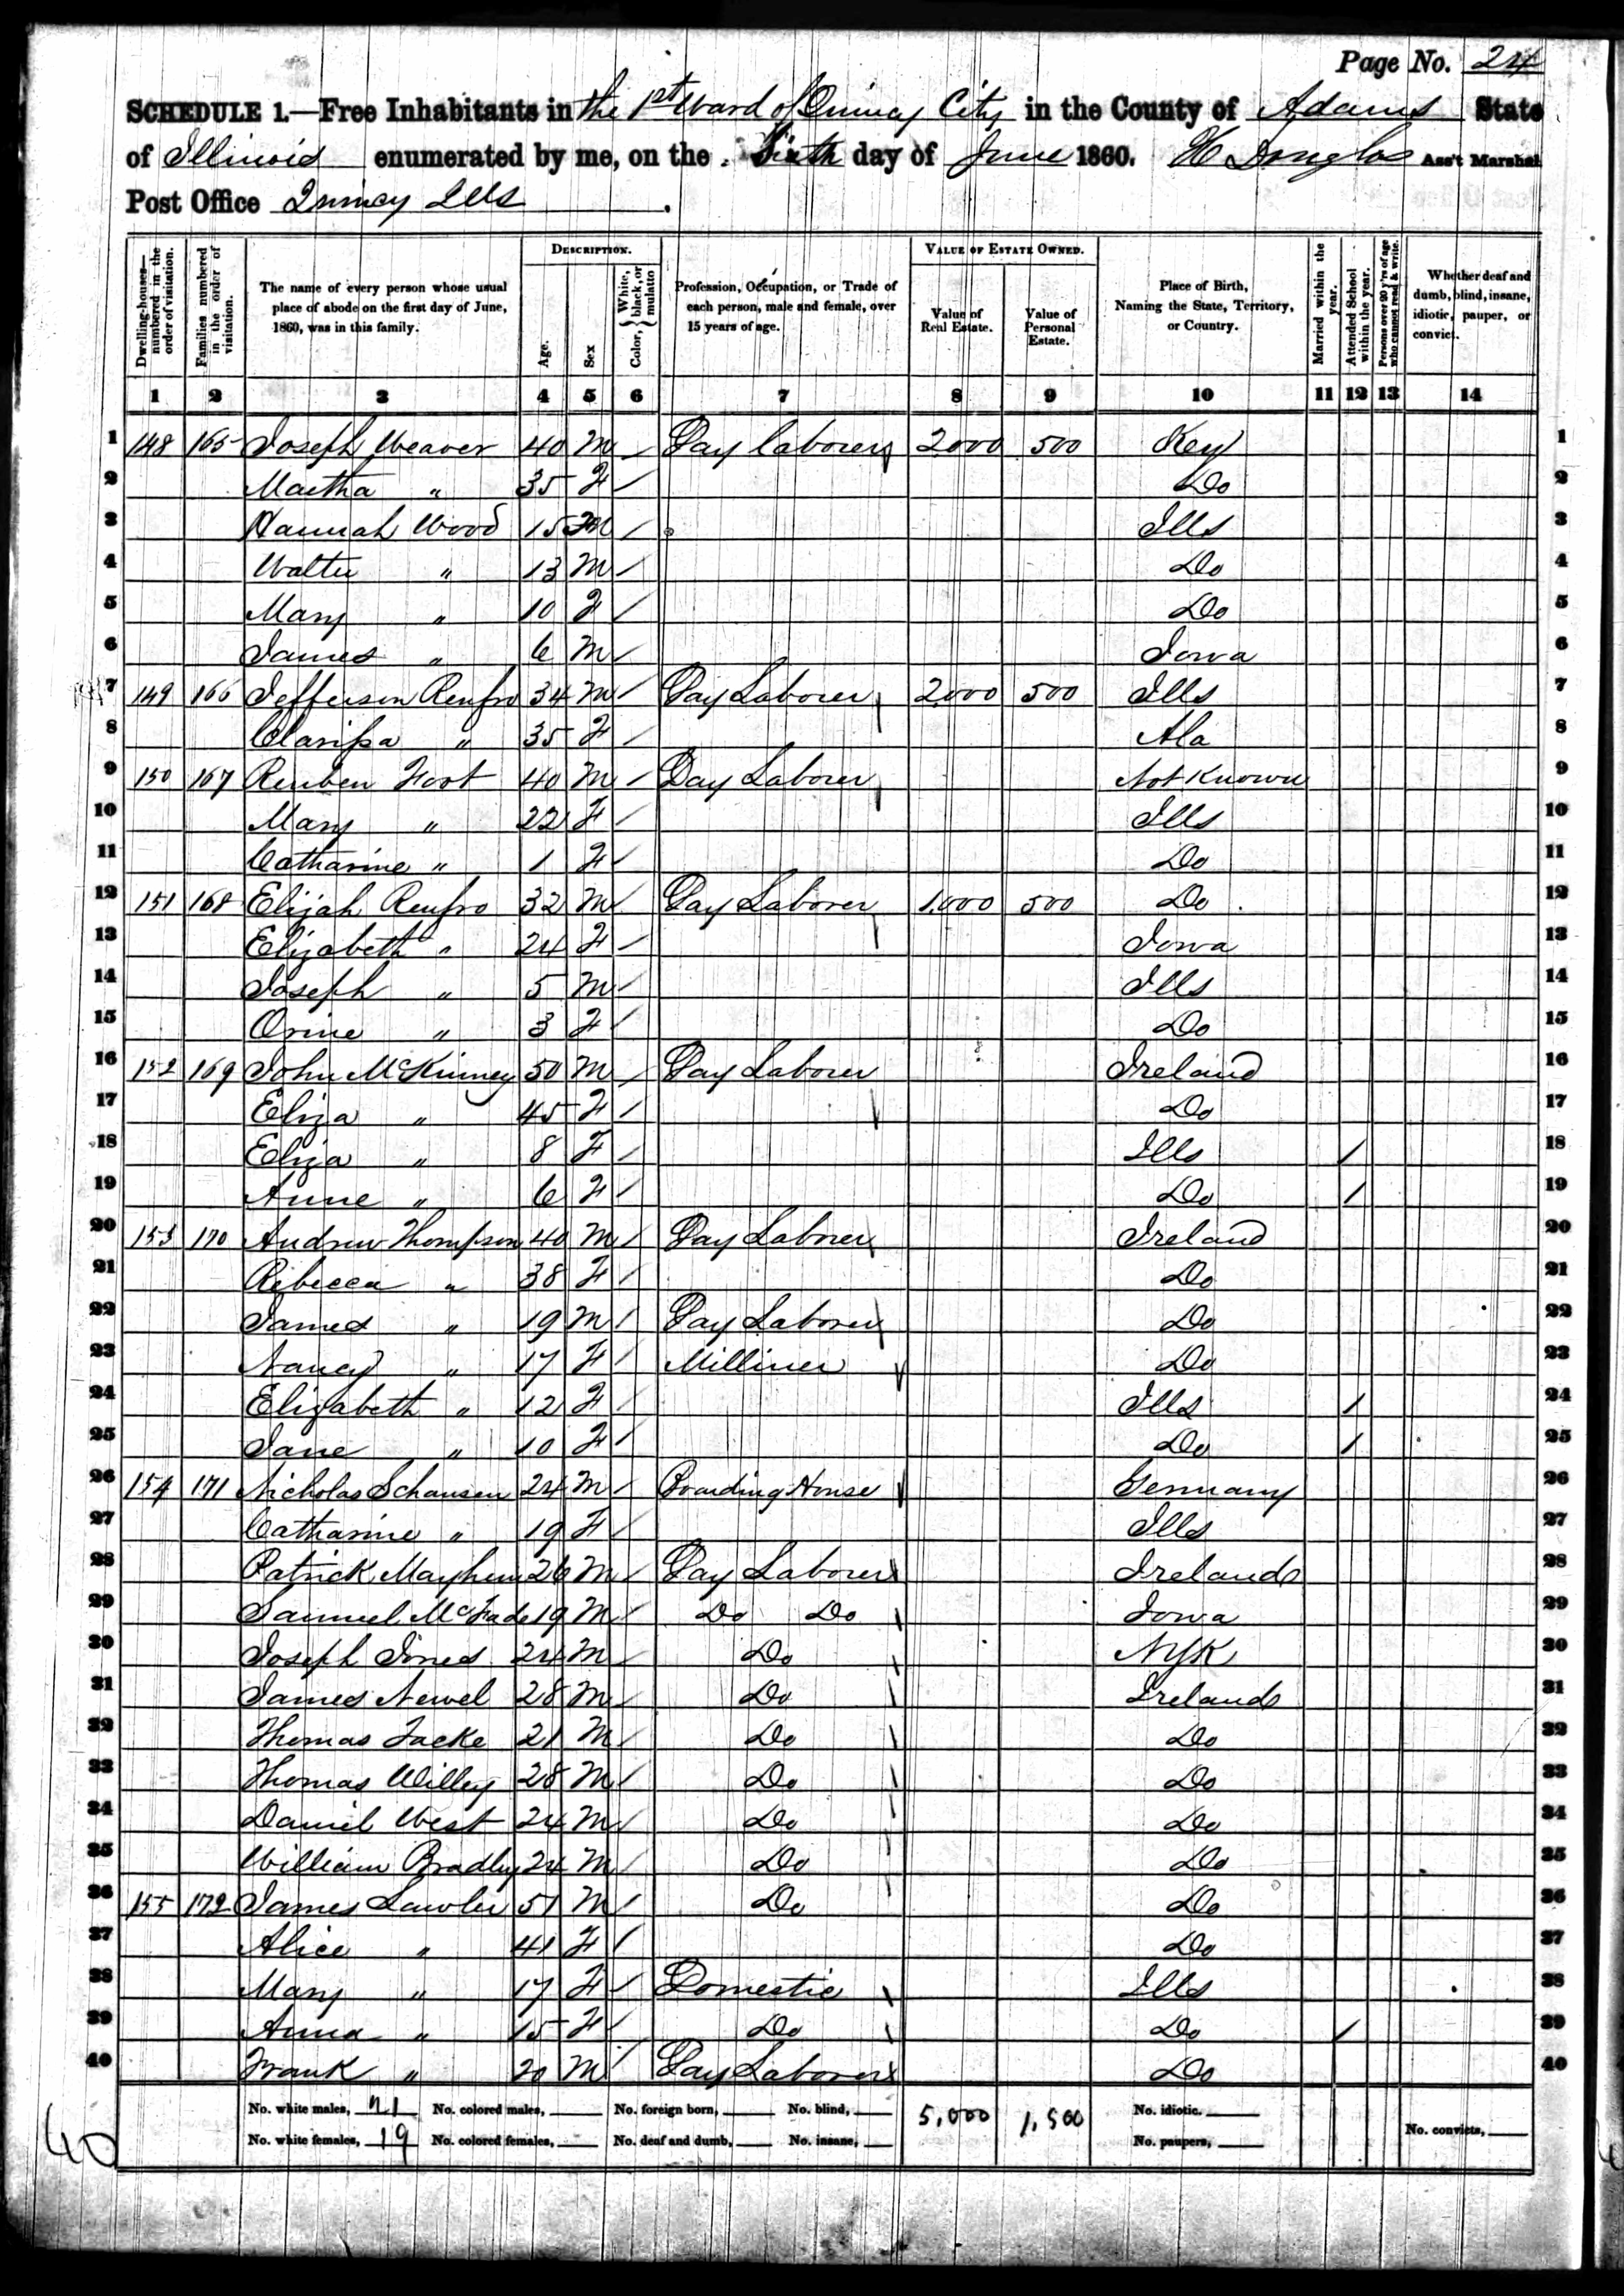 Page No. 24
SCHEDULE 1.—Free Inhabitants in the 1st Ward of Quincy City in the County of Adams State
of Illinois enumerated by me, on the Sixth day of June 1860. Douglas Ass't Marshal
Post Office Quincy Ills.
Dwelling-houses—numbered in the order of visitation.
Families numbered in the order of visitation.
The name of every person whose usual place of abode on the first day of June, 1860, was in this family.
DESCRIPTION.
Age.
Sex
Color, { White, black, or mulatto
Profession, Occupation, or Trade of each person, male and female, over 15 years of age.
VALUE OF ESTATE OWNED.
Value of Real Estate.
Value of Personal Estate.
Place of Birth, Naming the State, Territory, or Country.
Married within the year.
Attended School within the year.
Persons over 20 y'rs of age who cannot read & write.
Whether deaf and dumb, blind, insane, idiotic, pauper, or convict.
1 2 3 4 5 6 7 8 9 10 11 12 13 14
1 148 165 Joseph Weaver 40 M / Day laborer 2000 500 Key 1
2 Martha " 35 F / Do 2
3 Hannah Wood 15 / Ills 3
4 Walter " 13 M / Do 4
5 Mary " 10 F / Do 5
6 James " 6 M / Iowa 6
7 149 166 Jefferson Renfro 34 M / Day Laborer 2000 500 Ills 7
8 Clarissa " 35 F / Ala 8
9 150 167 Reuben Foot 40 M / Day Laborer Not Known 9
10 Mary " 22 F / Ills 10
11 Catharine " 1 F / Do 11
12 151 168 Elijah Renfro 32 M / Day Laborer 1.000 500 Do 12
13 Elizabeth " 24 F / Iowa 13
14 Joseph " 5 M / Ills 14
15 Orine " 3 F / Do 15
16 152 169 John McKinney 50 M / Day Laborer Ireland 16
17 Eliza " 45 F / Do 17
18 Eliza " 8 F / Ills / 18
19 Anne " 6 F / Do / 19
20 153 170 Andrew Thompson 40 M / Day Laborer Ireland 20
21 Rebecca " 38 F / Do 21
22 James " 19 M / Day Laborer Do 22
23 Nancy " 17 F / Milliner Do 23
24 Elizabeth " 12 F / Ills / 24
25 Jane " 10 F / Do / 25
26 154 171 Nicholas Schausen 24 M / Boarding House Germany 26
27 Catharine " 19 F / Ills 27
28 Patrick 26 M / Day Laborer Ireland 28
29 Samuel McFade 19 M / Do Do Iowa 29
30 Joseph Jones 24 M / Do NYK 30
31 James Newel 28 M / Do Ireland 31
32 Thomas 21 M / Do Do 32
33 Thomas Willey 28 M / Do Do 33
34 Daniel West 24 M / Do Do 34
35 William Bradley 24 M / Do Do 35
36 155 172 James Lawler 51 M / Do Do 36
37 Alice " 41 F / Do 37
38 Mary " 17 F / Domestic Ills 38
39 Anna " 15 F / Do Do / 39
40 Frank " 20 M / Day Laborer Do 40
No. white males, 21 No. colored males, No. foreign born, No. blind, 5,000 1,500 No. idiotic.
No. white females, 19 No. colored females, No. deaf and dumb, No. insane, No. paupers, No. convicts,
40